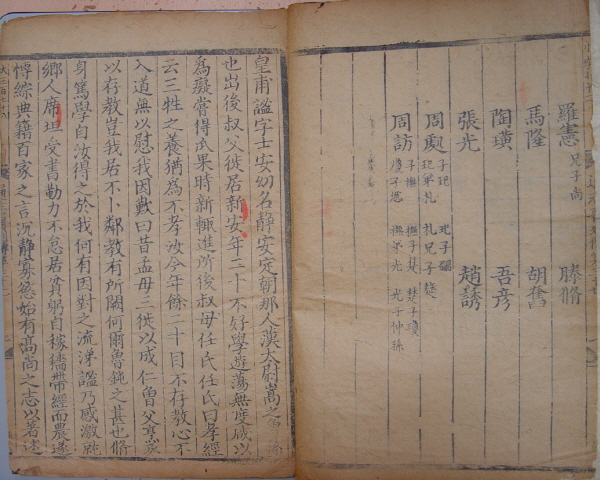 羅憲 兄子尚 滕脩
馬隆 胡奮
陶璜 吾彦
張光 趙誘
周處 子玘 玘子勰
玘弟札 札兄子莚
周訪 子撫 撫子楚 楚子瓊
瓊子虓 撫弟光 光子仲孫
皇甫謐字士安幼名静安定朝那人漢太尉嵩之
也出後叔父徙居新安年二十不好學遊蕩無度或以
為癡嘗得瓜果時輒進所後叔母任氏任氏曰孝經
云三牲之養猶為不孝汝今年餘二十目不存教心不
入道無以慰我因歎曰昔孟母三徙以成仁曾父烹豕
以存教豈我居不卜鄰教有所闕何爾魯鈍之甚也脩
身篤學自汝得之於我何有因對之流涕謐乃感激就
鄉人席坦受書勤力不怠居貧躬自稼穡帶經而農遂
博綜典籍百家之言沉静寡慾始有高尚之志以著述